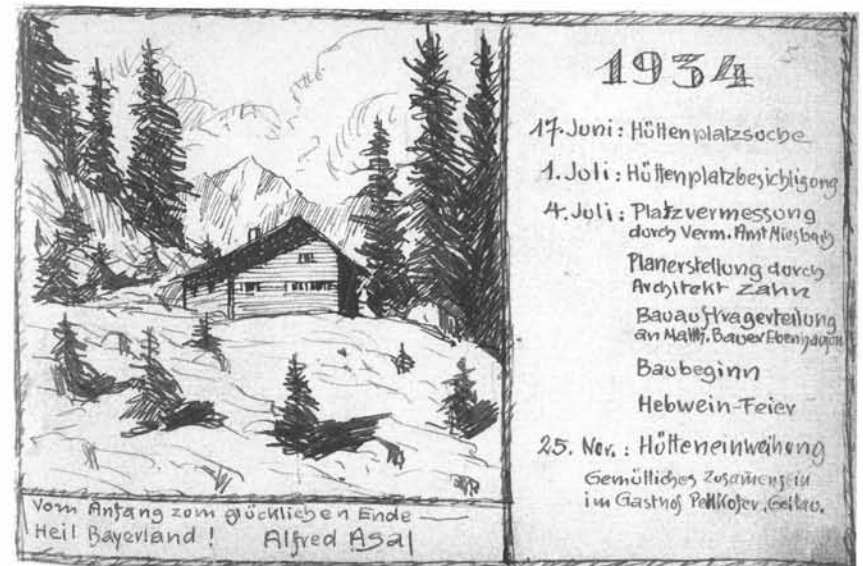 1934
17. Juni: Hüttenplatzsuche
1. Juli: Hüttenplatzbesichtigung
4. Juli: Platzvermessung
durch Verm. Amt Miesbach
Planerstellung durch
Architekt Zahn
Bauauftragerteilung
an Matth. Bauer
Baubeginn
Hebwein-Feier
25. Nov.: Hütteneinweihung
Gemütliches Zusamensein
im Gasthof Pellkofer, Geitau.
Vom Anfang zum glücklichen Ende —
Heil Bayerland! Alfred Asal